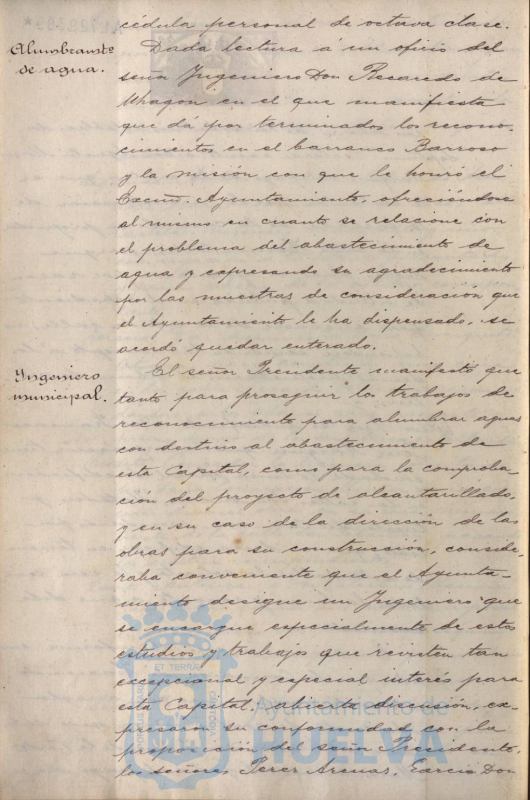 cédula personal de octava clase.
Alumbramto
de agua.
Dada lectura á un oficio del
señor Ingeniero Don Recaredo de
Uhagon en el que manifiesta
que dá por terminados los recono-
cimientos en el barranco Barroso
y la misión con que le honró el
Excmo. Ayuntamiento, ofreciéndose
al mismo en cuanto se relacione con
el problema del abastecimiento de
agua y expresando su agradecimiento
por las muestras de consideración que
el Ayuntamiento le ha dispensado, se
acordó quedar enterado.
Ingeniero
municipal.
El señor Presidente manifestó que
tanto para proseguir los trabajos de
reconocimiento para alumbrar aguas
con destino al abastecimiento de
esta Capital, como para la comproba-
ción del proyecto de alcantarillado,
y en su caso de la dirección de las
obras para su construcción, conside-
raba conveniente que el Ayunta-
miento designe un Ingeniero que
se encargue especialmente de estos
estudios y trabajos que revisten tan
excepcional y especial interés para
esta Capital; abierta discusión, ex-
presaron su conformidad con la
proposición del señor Presidente,
los señores Perez Arenas, Garcia Don
Ayuntamiento de
HUELVA